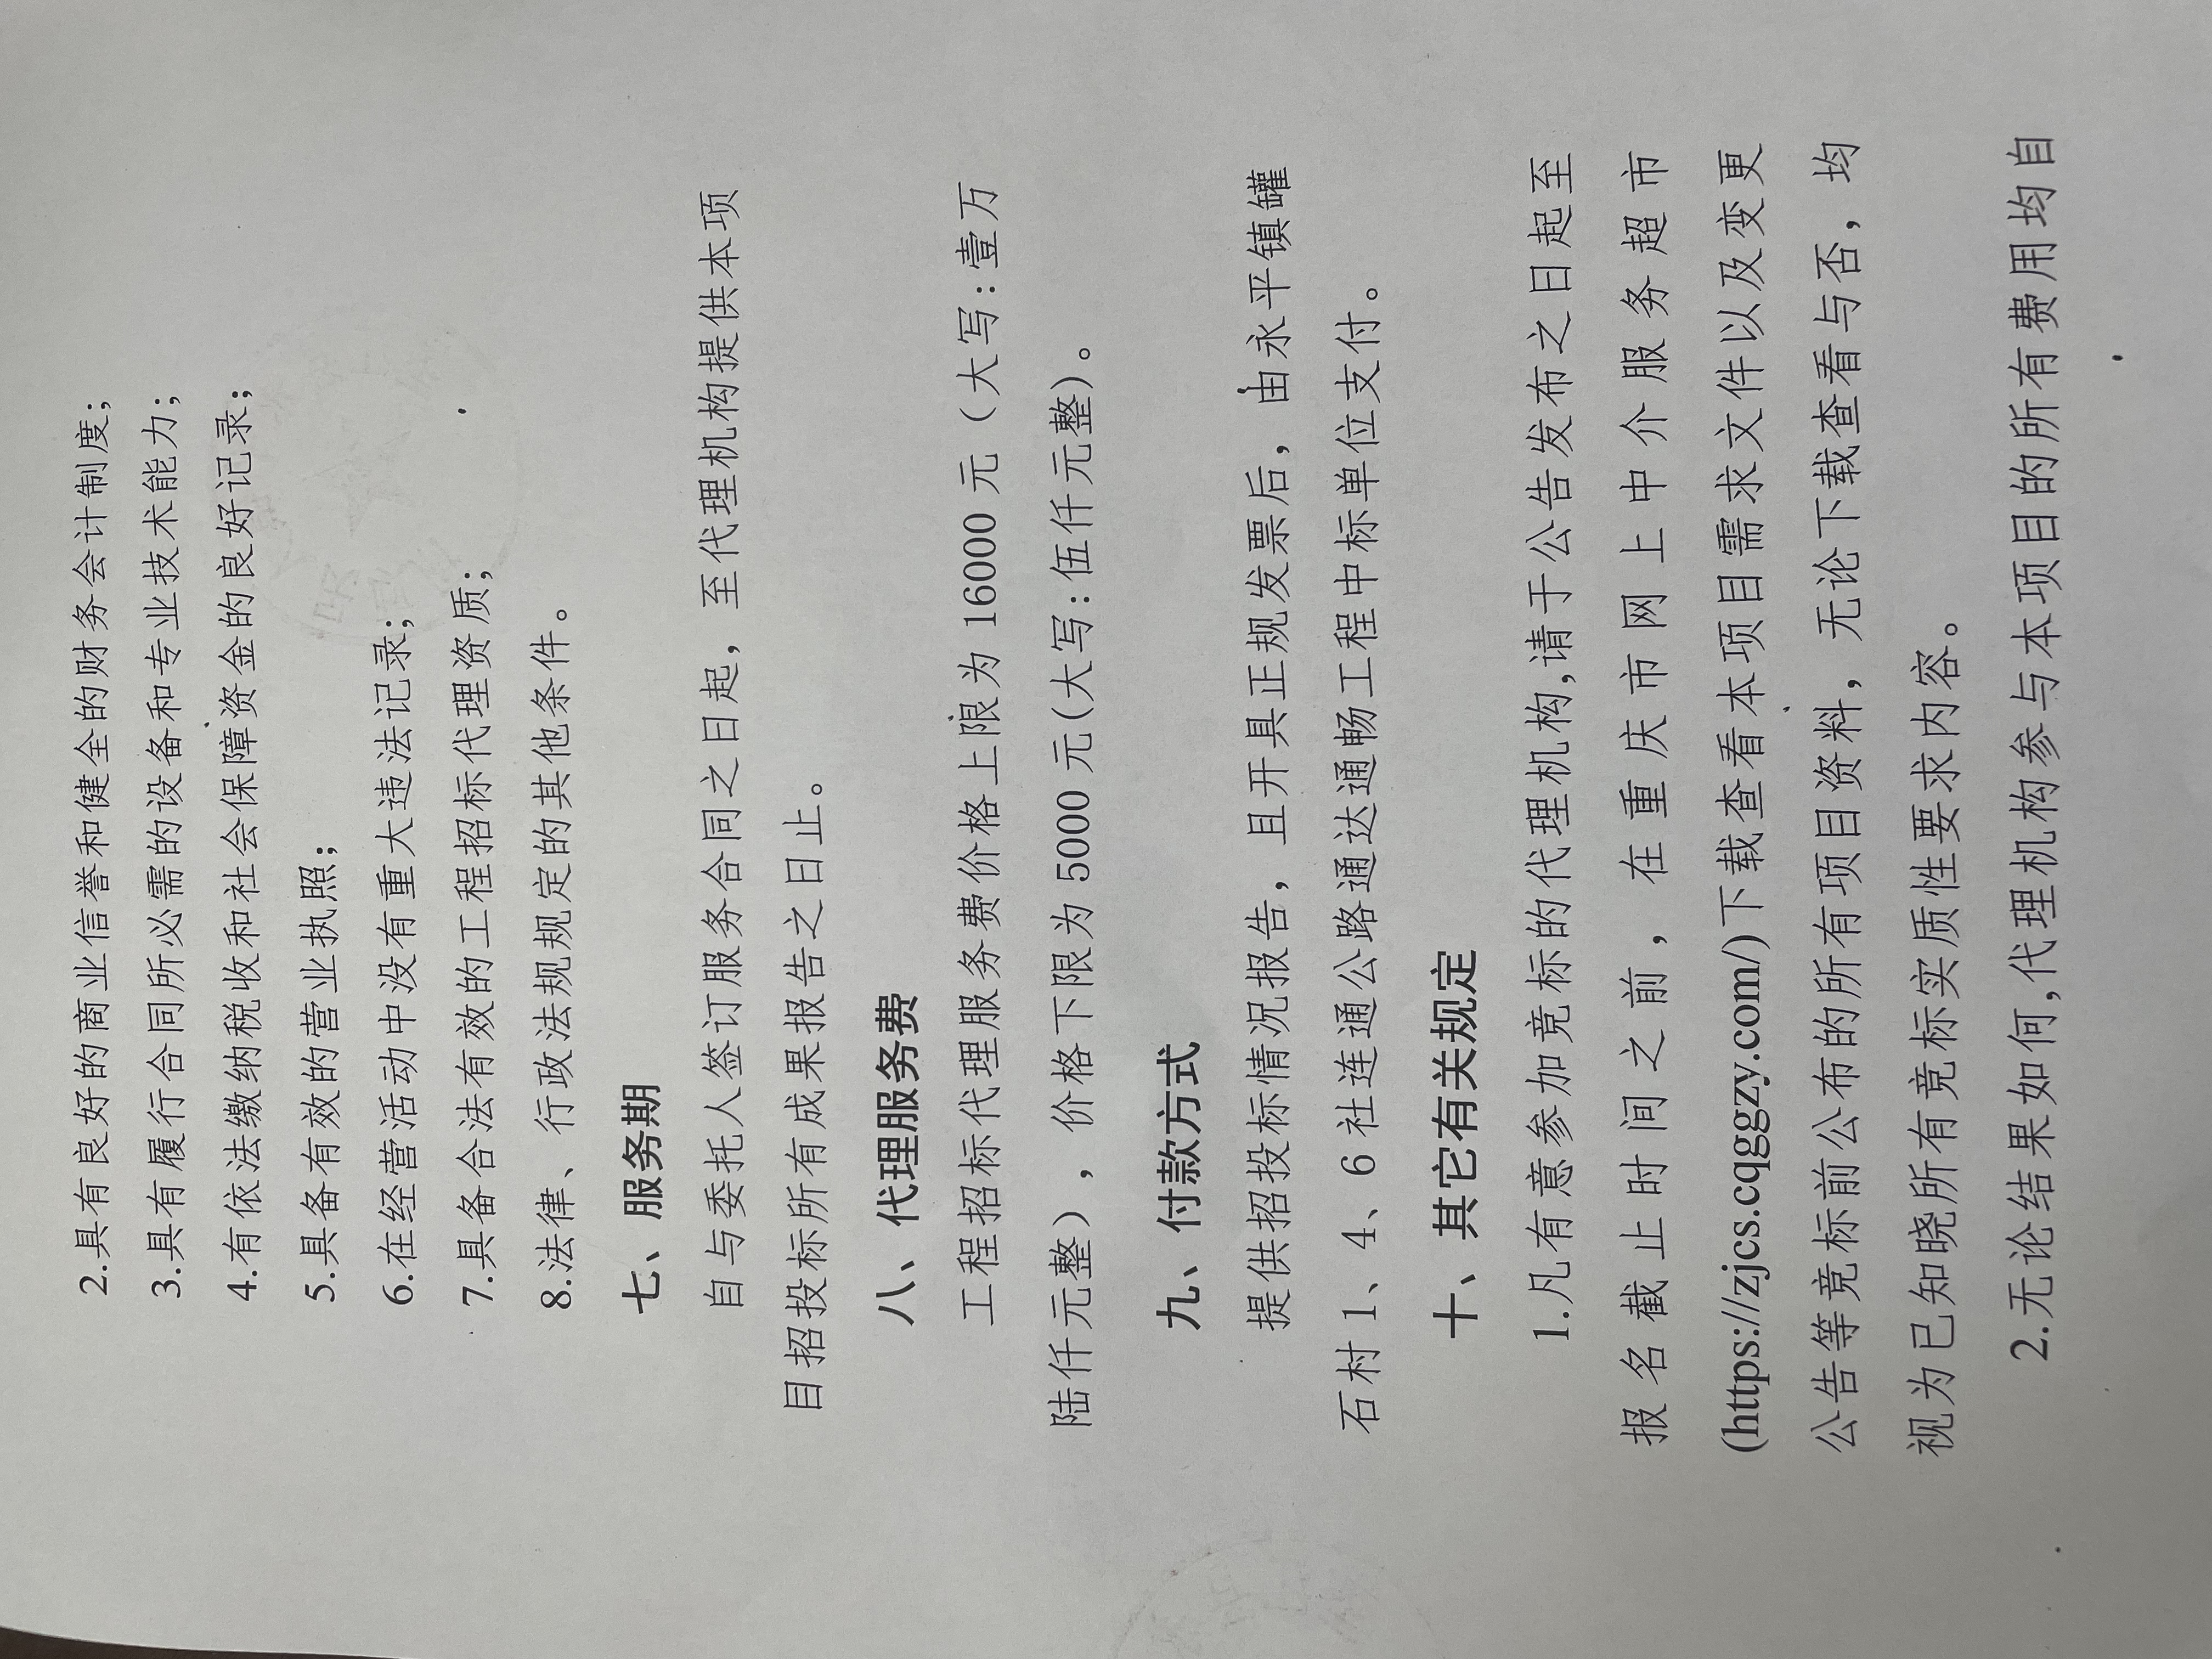 2.具有良好的商业信誉和健全的财务会计制度;
3.具有履行合同所必需的设备和专业技术能力;
4.有依法缴纳税收和社会保障资金的良好记录;
5.具备有效的营业执照;
6.在经营活动中没有重大违法记录;
7.具备合法有效的工程招标代理资质;
8.法律、行政法规规定的其他条件。
七、服务期
自与委托人签订服务合同之日起，至代理机构提供本项
目招投标所有成果报告之日止。
八、代理服务费
工程招标代理服务费价格上限为 16000 元（大写:壹万
陆仟元整），价格下限为 5000 元(大写:伍仟元整)。
九、付款方式
提供招投标情况报告，且开具正规发票后，由永平镇罐
石村 1、4、6 社连通公路通达通畅工程中标单位支付。
十、其它有关规定
1.凡有意参加竞标的代理机构,请于公告发布之日起至
报名截止时间之前，在重庆市网上中介服务超市
(https://zjcs.cqggzy.com/)下载查看本项目需求文件以及变更
公告等竞标前公布的所有项目资料，无论下载查看与否，均
视为已知晓所有竞标实质性要求内容。
2.无论结果如何,代理机构参与本项目的所有费用均自